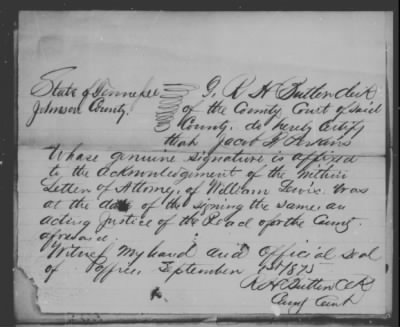 State of Tennessee
Johnson County.
I, R H Butler Clerk
of the County Court of said
County, do hereby certify
that Jacob H Perkins
Whose genuine signature is affixed
to the Acknowledgement of the within
Letter of Attorney, of William Lewis. was
at the date of the signing the same, an
acting Justice of the Peace for the County
aforesaid.
Witness My hand and Official Seal
of Office September 1875
R H Butler Clk
County Court